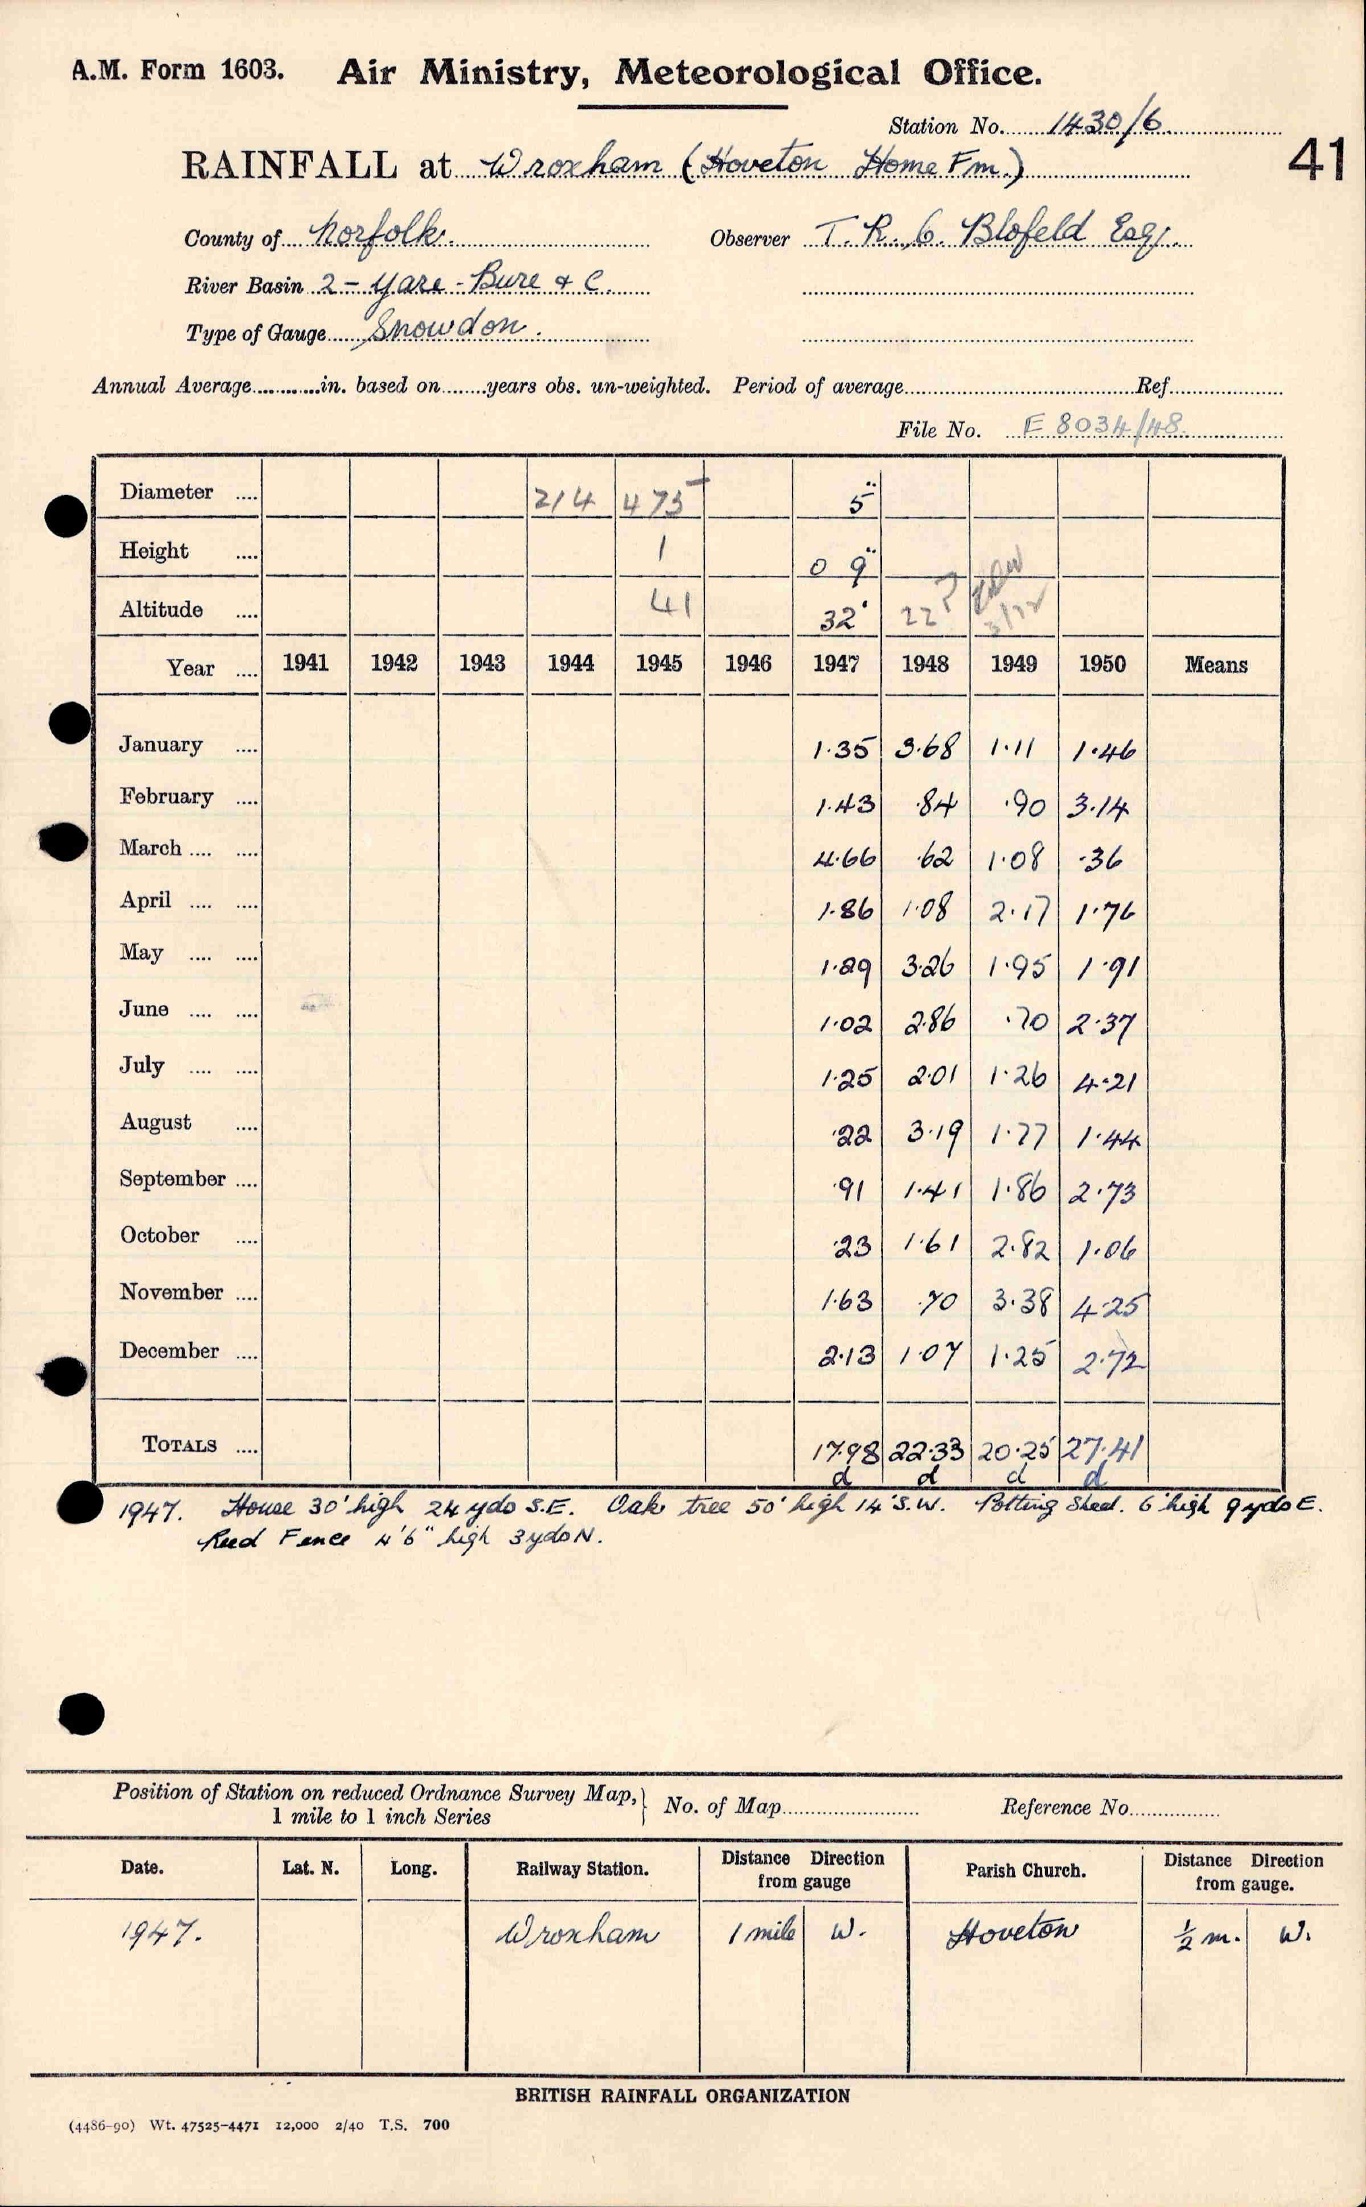 A.M. Form 1603. Air Ministry, Meteorological Office.
Station No. 1430/6
RAINFALL at Wroxham (Hoveton Home Fm.) 41
County of Norfolk. Observer T. R. C. Blofeld Esq.
River Basin 2 - Yare - Bure & C.
Type of Gauge Snowdon.
Annual Average in. based on years obs. un-weighted. Period of average Ref
File No. E 8034/48
Diameter 214 475 5"
Height 1 0 9"
Altitude 41 32' 22 ? 3/72
Year 1941 1942 1943 1944 1945 1946 1947 1948 1949 1950 Means
January 1.35 3.68 1.11 1.46
February 1.43 .84 .90 3.14
March 4.66 .62 1.08 .36
April 1.86 1.08 2.17 1.76
May 1.29 3.26 1.95 1.91
June 1.02 2.86 .70 2.37
July 1.25 2.01 1.26 4.21
August .22 3.19 1.77 1.44
September .91 1.41 1.86 2.73
October .23 1.61 2.82 1.06
November 1.63 .70 3.38 4.25
December 2.13 1.07 1.25 2.72
TOTALS 17.98 22.33 20.25 27.41
d d d d
1947. House 30' high 24 yds S.E. Oak tree 50' high 14' S.W. Potting Shed. 6' high 9 yds E.
Reed Fence 4'6" high 3 yds N.
Position of Station on reduced Ordnance Survey Map, No. of Map Reference No.
1 mile to 1 inch Series
Date. Lat. N. Long. Railway Station. Distance Direction Parish Church. Distance Direction
from gauge from gauge.
1947. Wroxham 1 mile W. Hoveton ½ m. W.
BRITISH RAINFALL ORGANIZATION
(4486-90) Wt. 47525-4471 12,000 2/40 T.S. 700